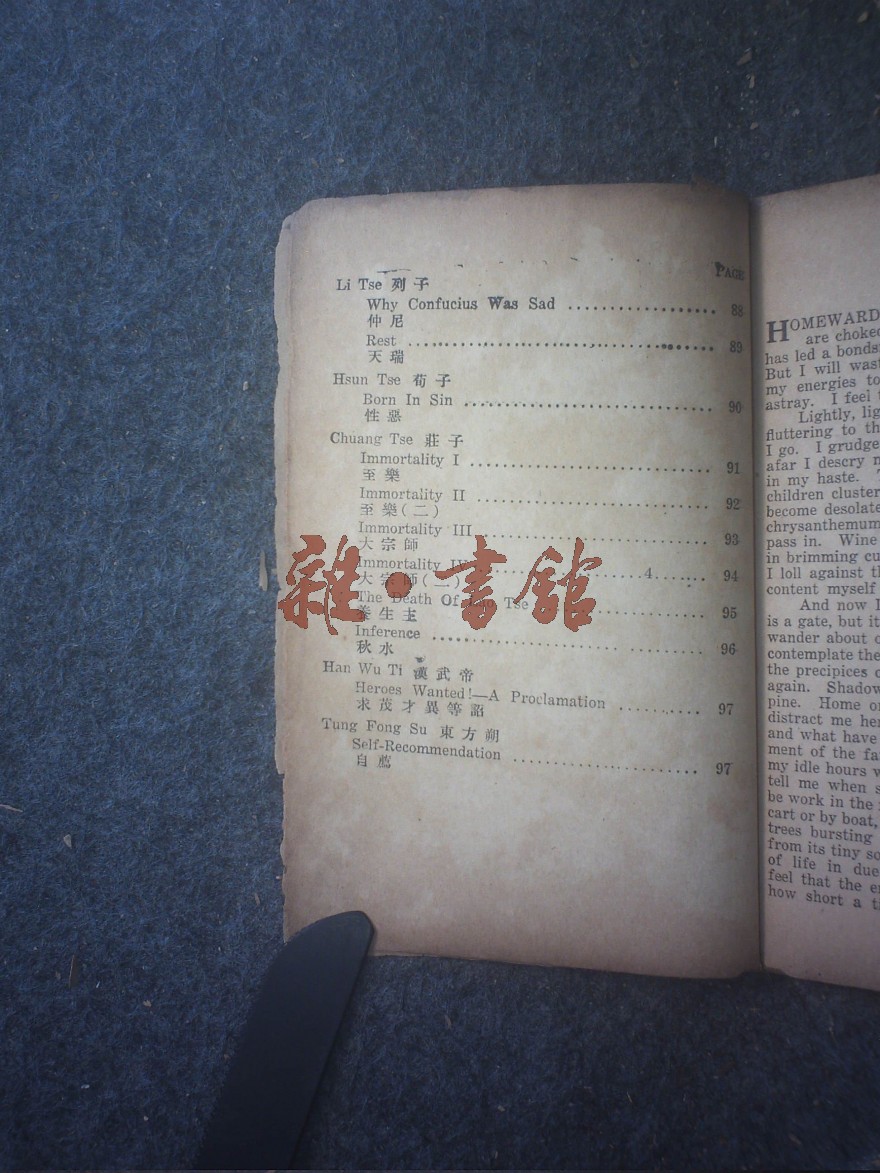 PAGE
Li Tse 列子
Why Confucius Was Sad .................. 88
仲尼
Rest .................. 89
天瑞
Hsun Tse 荀子
Born In Sin .................. 90
性惡
Chuang Tse 莊子
Immortality I .................. 91
至樂
Immortality II .................. 92
至樂(二)
Immortality III .................. 93
大宗師
Immortality IV .................. 94
大宗師(二)
The Death Of Lao Tse .................. 95
養生主
Inference .................. 96
秋水
Han Wu Ti 漢武帝
Heroes Wanted!—A Proclamation .......... 97
求茂才異等詔
Tung Fong Su 東方朔
Self-Recommendation .................. 97
自薦
雜·書館
HOMEWARD
are choked
has led a bonds
But I will wast
my energies to
astray. I feel
Lightly, lig
fluttering to th
I go. I grudge
afar I descry
in my haste.
children cluster
become desolate
chrysanthemum
pass in. Wine
in brimming cu
I loll against th
content myself
And now I
is a gate, but it
wander about
contemplate the
the precipices
again. Shadow
pine. Home or
distract me her
and what have
ment of the fa
my idle hours
tell me when s
be work in the
cart or by boat,
trees bursting
from its tiny so
of life in due
feel that the
how short a